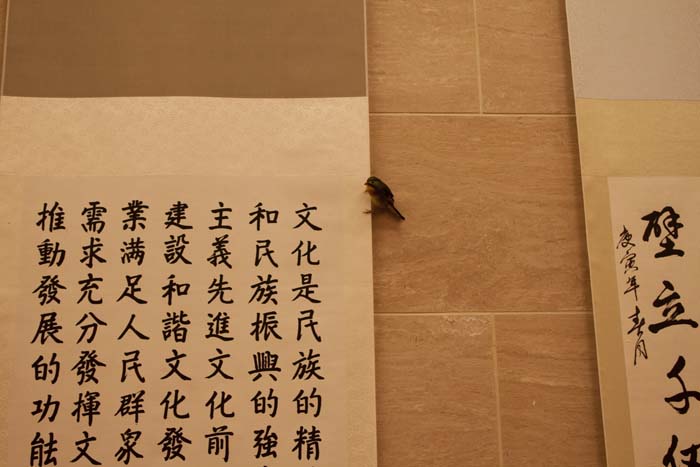 壁立千
庚寅年春月
文化是民族的精
和民族振興的強
主義先進文化前
建設和諧文化發
業满足人民群衆
需求充分發揮文
推動發展的功能